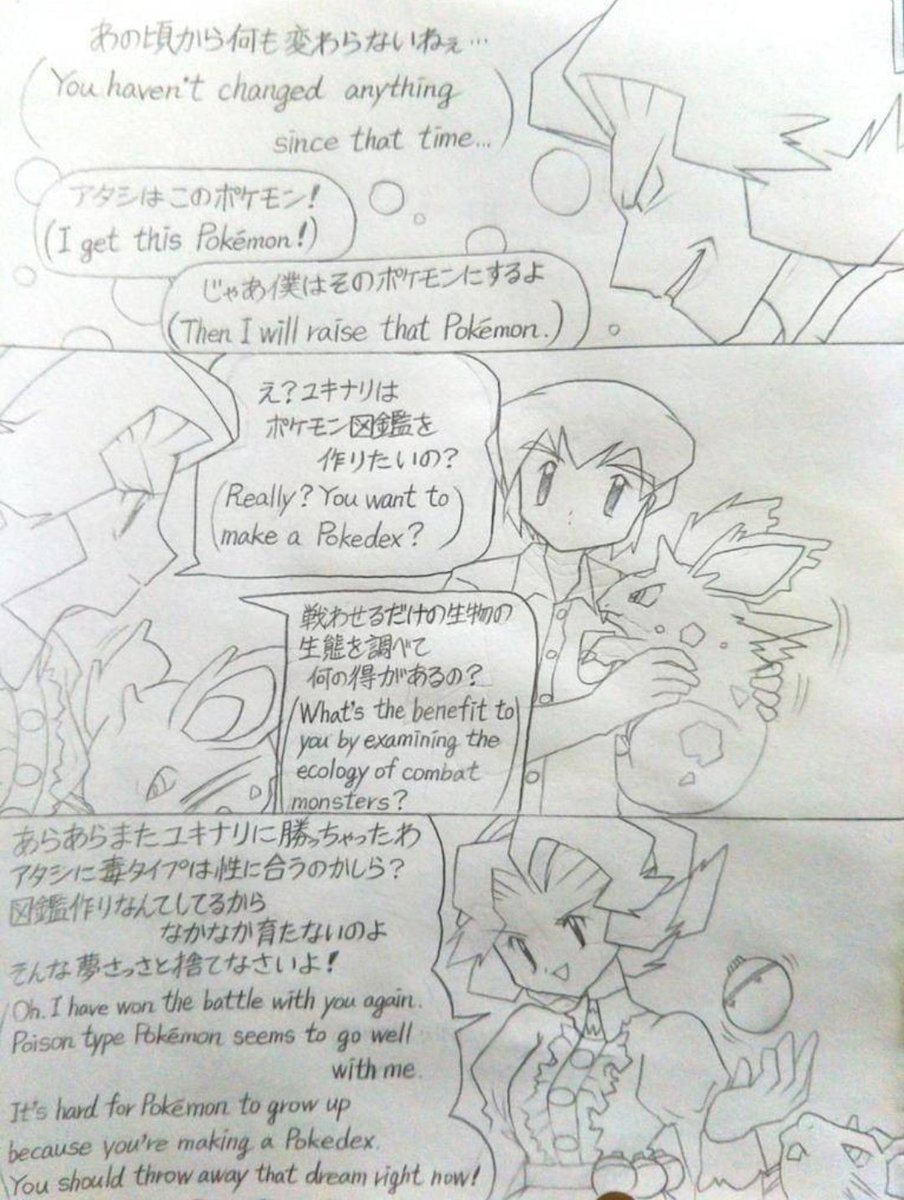 あの頃から何も変わらないねぇ…
(You haven't changed anything
since that time...)
アタシはこのポケモン!
(I get this Pokémon!)
じゃあ僕はそのポケモンにするよ
(Then I will raise that Pokémon.)
え?ユキナリは
ポケモン図鑑を
作りたいの?
(Really? You want to
make a Pokedex?)
戦わせるだけの生物の
生態を調べて
何の得があるの?
(What's the benefit to
you by examining the
ecology of combat
monsters?
あらあらまたユキナリに勝っちゃったわ
アタシに毒タイプは性に合うのかしら?
図鑑作りなんてしてるから
なかなか育たないのよ
そんな夢さっさと捨てなさいよ!
Oh. I have won the battle with you again.
Poison type Pokémon seems to go well
with me.
It's hard for Pokémon to grow up
because you're making a Pokedex.
You should throw away that dream right now!